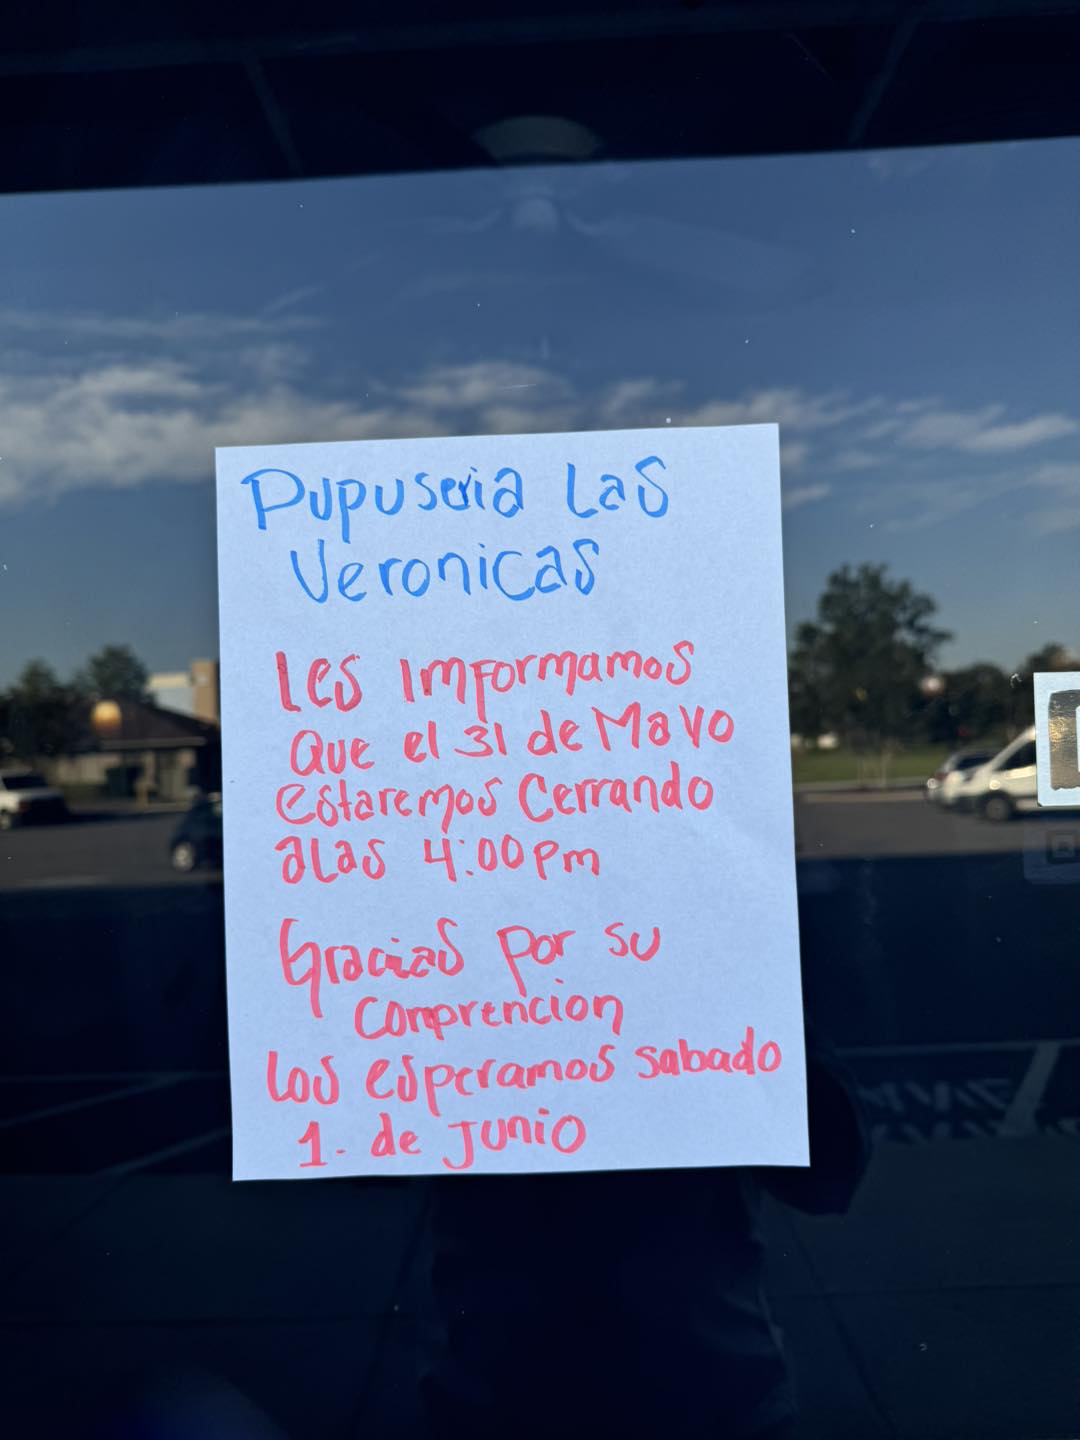 Pupuseria Las
Veronicas
Les Imformamos
Que el 31 de Mayo
estaremos Cerrando
alas 4:00 pm
Gracias por su
comprencion
Los esperamos sabado
1. de Junio